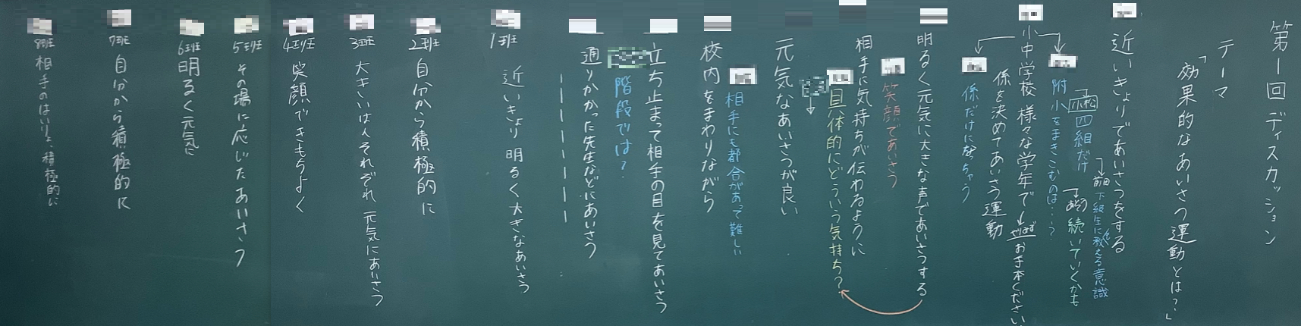 第一回 ディスカッション
テーマ
「効果的なあいさつ運動とは?」
近いきょりであいさつをする
下級生に教える意識
続いていくかも
四組だけ
附小をまきこむのは・・・
小中学校 様々な学年で
お手本ください
係を決めてあいさつ運動
係だけになっちゃう
明るく元気に大きな声であいさつする
笑顔であいさつ
相手に気持ちが伝わるように
具体的にどういう気持ち?
元気なあいさつが良い
相手にも都合があって難しい
校内をまわりながら
立ち止まって相手の目を見てあいさつ
階段では?
通りかかった先生などにあいさつ
1班 近いきょり 明るく大きなあいさつ
2班 自分から積極的に
3班 大きいは人それぞれ 元気にあいさつ
4班 笑顔できもちよく
5班 その場に応じたあいさつ
6班 明るく元気に
7班 自分から積極的に
8班 相手のはいりょ、積極的に